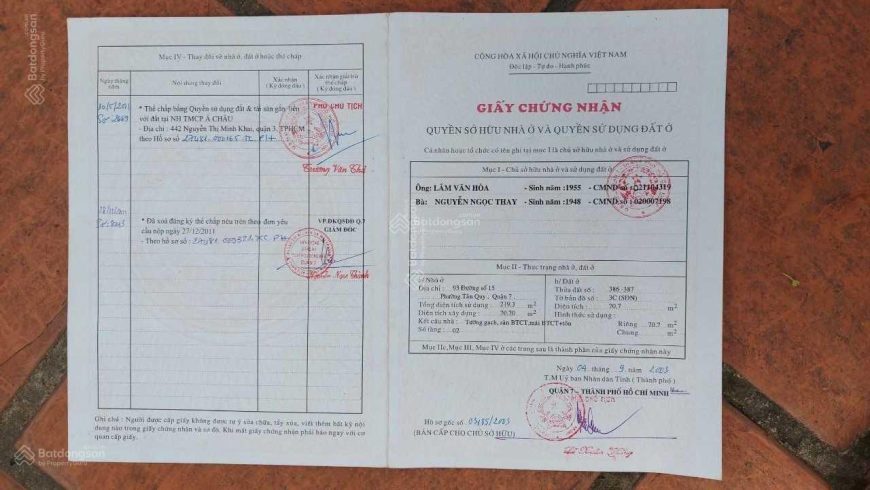 Mục IV - Thay đổi về nhà ở, đất ở hoặc thế chấp
Ngày tháng năm
Nội dung thay đổi
Xác nhận (Ký đóng dấu)
Xác nhận giải trừ thế chấp (Ký đóng dấu)
* Thế chấp bằng Quyền sử dụng đất & tài sản gắn liền
với đất tại NH TMCP Á CHÂU
- Địa chỉ : 442 Nguyễn Thị Minh Khai, quận 3, TPHCM
theo Hồ sơ số
PHÓ CHỦ TỊCH
Trương Văn Thu
* Đã xoá đăng ký thế chấp nêu trên theo đơn yêu
cầu nộp ngày 27/12/2011
- Theo hồ sơ số :
VP.ĐKQSDĐ Q.7
GIÁM ĐỐC
Ghi chú : Người được cấp giấy không được tự ý sửa chữa, tẩy xóa, viết thêm bất kỳ nội
dung nào trong giấy chứng nhận và sơ đồ. Khi mất giấy chứng nhận phải báo ngay với cơ
quan cấp giấy.
CỘNG HÒA XÃ HỘI CHỦ NGHĨA VIỆT NAM
Độc lập - Tự do - Hạnh phúc
GIẤY CHỨNG NHẬN
QUYỀN SỞ HỮU NHÀ Ở VÀ QUYỀN SỬ DỤNG ĐẤT Ở
Cá nhân hoặc tổ chức có tên ghi tại mục I là chủ sở hữu nhà ở và sử dụng đất ở
Mục I - Chủ sở hữu nhà ở và sử dụng đất ở
Ông: LÂM VĂN HÒA - Sinh năm : 1955 - CMND số :
Bà: NGUYỄN NGỌC THAY - Sinh năm : 1948 - CMND số : 020007198
Mục II - Thực trạng nhà ở, đất ở
a/ Nhà ở
Địa chỉ : 93 Đường số 15
Phường Tân Quy , Quận 7
Tổng diện tích sử dụng : 219.3 m2
Diện tích xây dựng : 70.70 m2
Kết cấu nhà : Tường gạch, sàn BTCT, mái BTCT+tôn
Số tầng : 02
b/ Đất ở
Thửa đất số : 386 -387
Tờ bản đồ số : 3C (SĐN)
Diện tích : 70.7 m2
Hình thức sử dụng :
Riêng : 70.7 m2
Chung m2
Mục IIc, Mục III, Mục IV ở các trang sau là thành phần của giấy chứng nhận này
Ngày 04 tháng 9 năm 2003
T.M Ủy ban Nhân dân Tỉnh ( Thành phố )
QUẬN 7 - THÀNH PHỐ HỒ CHÍ MINH
CHỦ TỊCH
Hồ sơ gốc số
(BẢN CẤP CHO CHỦ SỞ HỮU)
Batdongsan
by PropertyGuru
Batdongsan
by PropertyGuru
Batdongsan
Batdongsan
by PropertyGuru